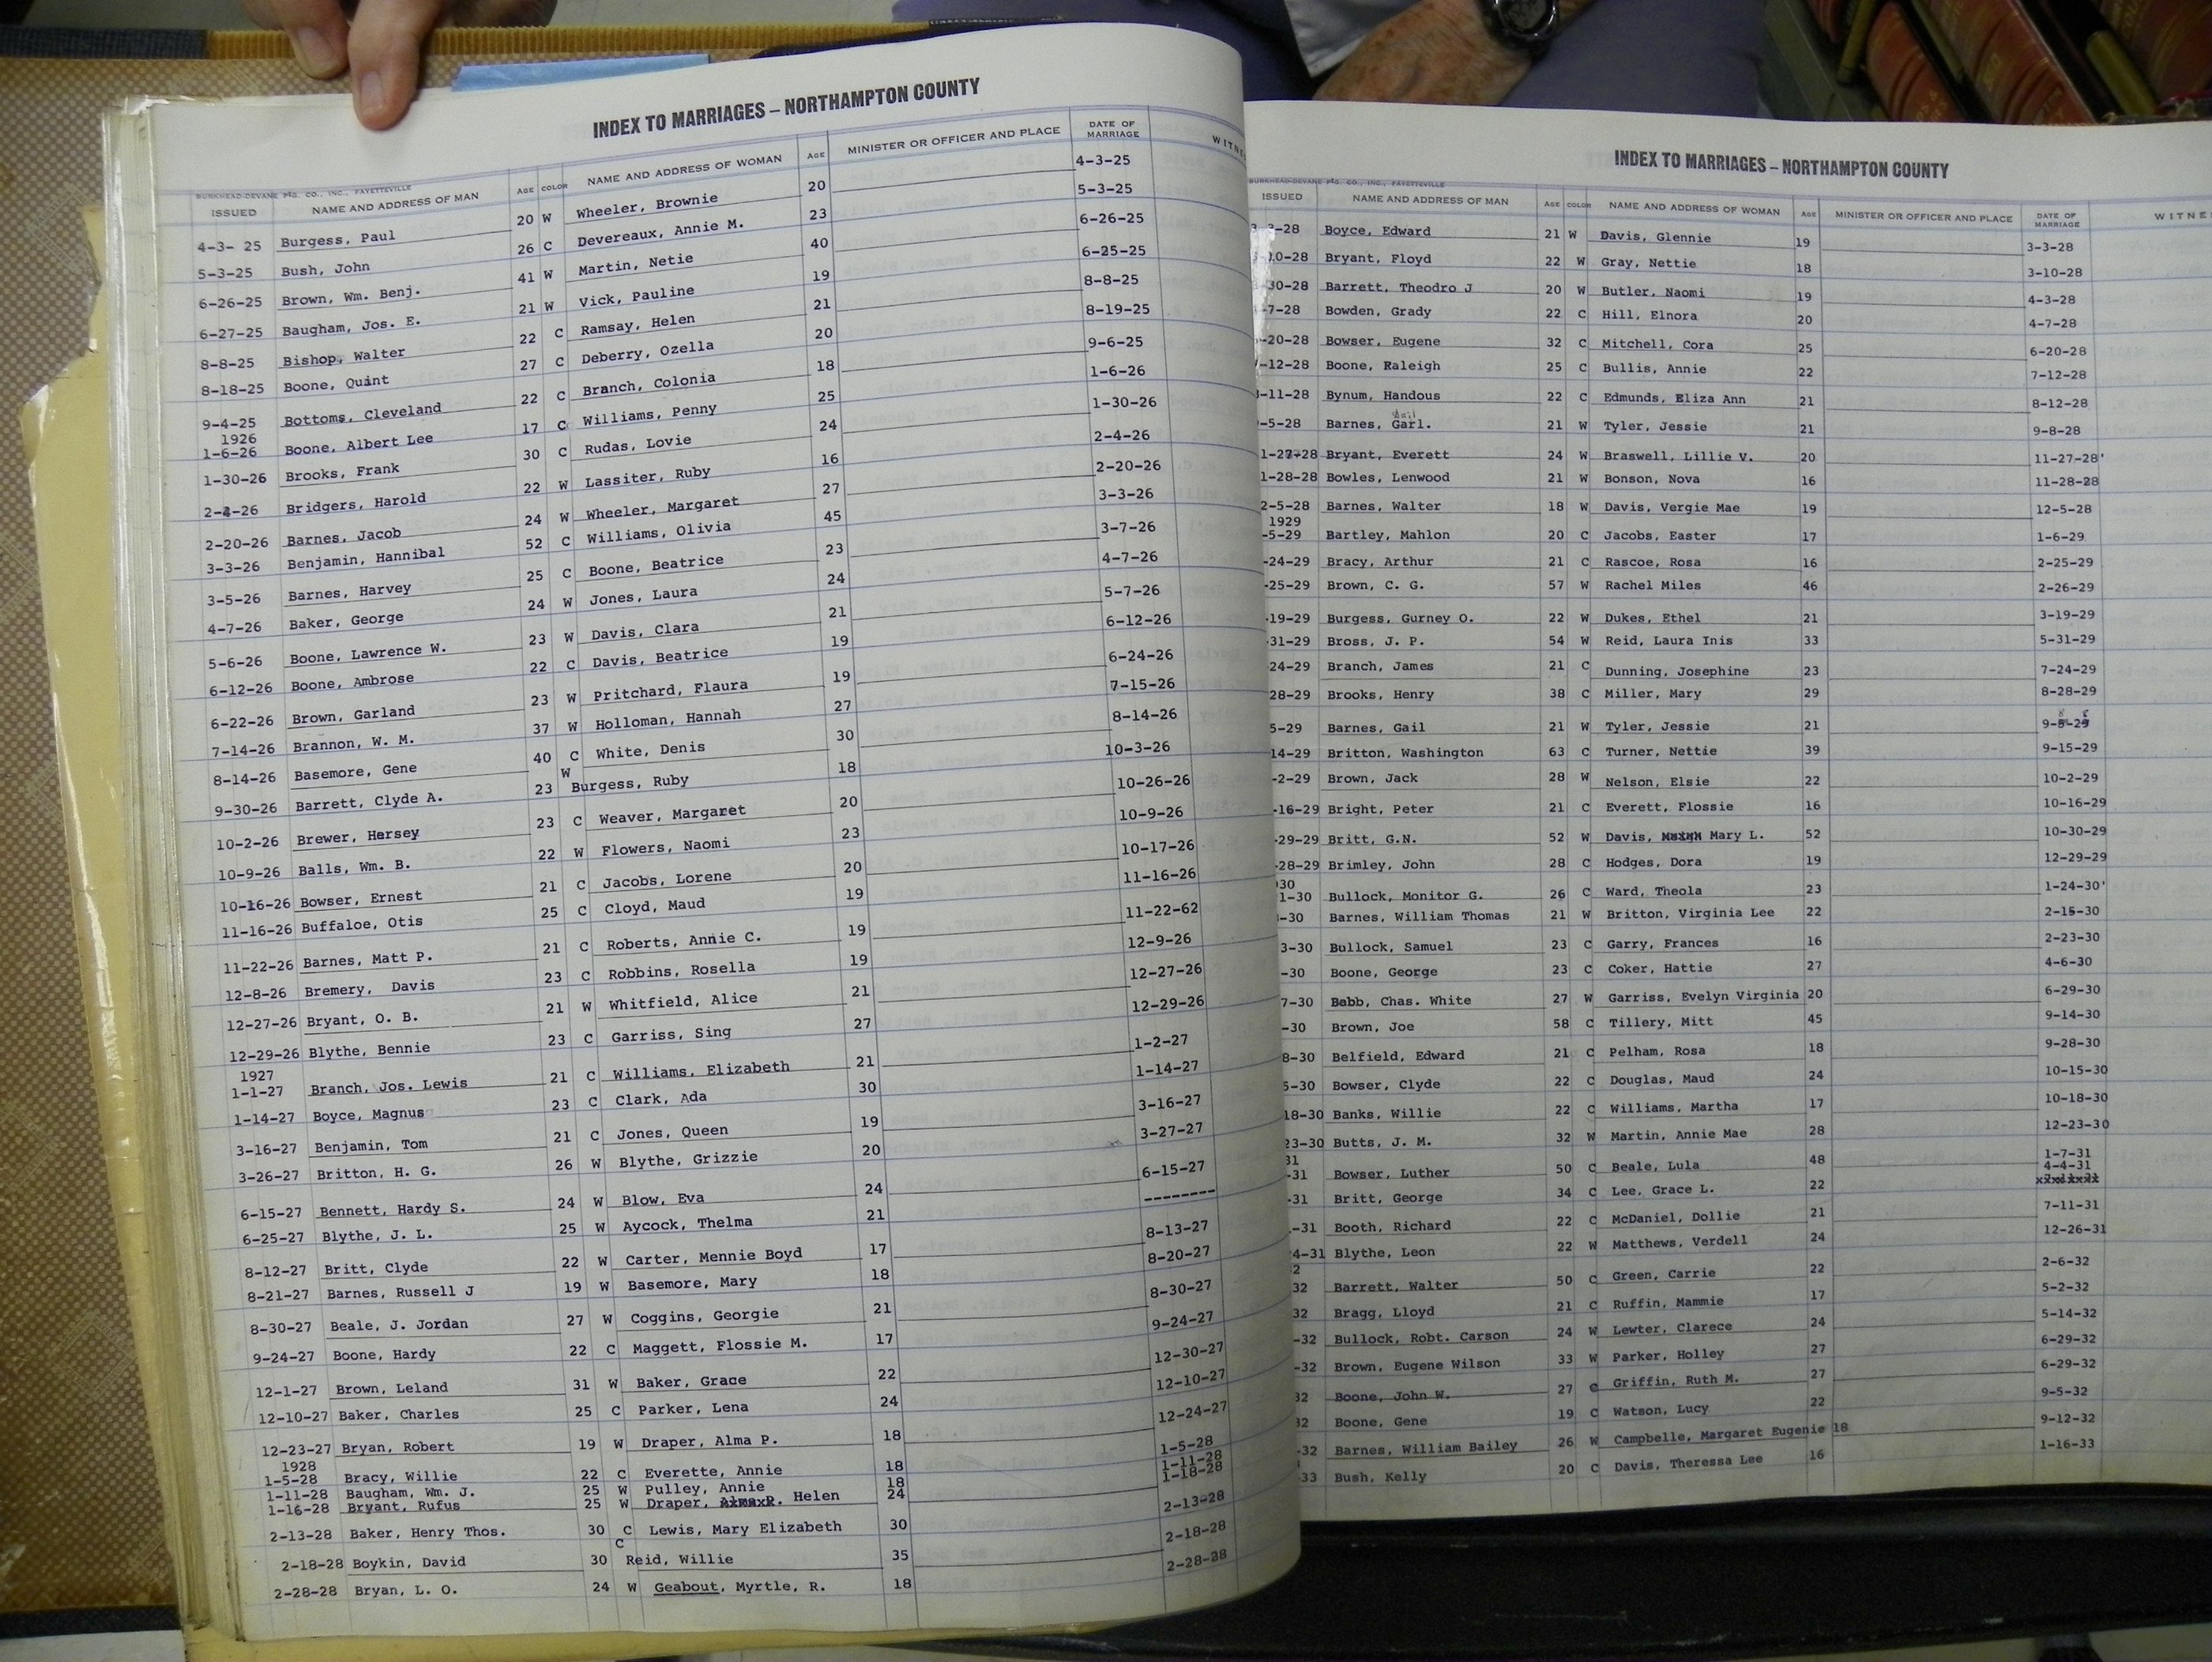 INDEX TO MARRIAGES – NORTHAMPTON COUNTY
BURKHEAD-DEVANE PTG. CO., INC., FAYETTEVILLE
ISSUED NAME AND ADDRESS OF MAN AGE COLOR NAME AND ADDRESS OF WOMAN AGE MINISTER OR OFFICER AND PLACE DATE OF MARRIAGE
4-3-25 Burgess, Paul 20 W Wheeler, Brownie 20 4-3-25
5-3-25 Bush, John 26 C Devereaux, Annie M. 23 5-3-25
6-26-25 Brown, Wm. Benj. 41 W Martin, Netie 40 6-26-25
6-27-25 Baugham, Jos. E. 21 W Vick, Pauline 19 6-25-25
8-8-25 Bishop, Walter 22 C Ramsay, Helen 21 8-8-25
8-18-25 Boone, Quint 27 C Deberry, Ozella 20 8-19-25
9-4-25 Bottoms, Cleveland 22 C Branch, Colonia 18 9-6-25
1926
1-6-26 Boone, Albert Lee 17 C Williams, Penny 25 1-6-26
1-30-26 Brooks, Frank 30 C Rudas, Lovie 24 1-30-26
2-4-26 Bridgers, Harold 22 W Lassiter, Ruby 16 2-4-26
2-20-26 Barnes, Jacob 24 W Wheeler, Margaret 27 2-20-26
3-3-26 Benjamin, Hannibal 52 C Williams, Olivia 45 3-3-26
3-5-26 Barnes, Harvey 25 C Boone, Beatrice 23 3-7-26
4-7-26 Baker, George 24 W Jones, Laura 24 4-7-26
5-6-26 Boone, Lawrence W. 23 W Davis, Clara 21 5-7-26
6-12-26 Boone, Ambrose 22 C Davis, Beatrice 19 6-12-26
6-22-26 Brown, Garland 23 W Pritchard, Flaura 19 6-24-26
7-14-26 Brannon, W. M. 37 W Holloman, Hannah 27 7-15-26
8-14-26 Basemore, Gene 40 C White, Denis 30 8-14-26
9-30-26 Barrett, Clyde A. 23 W Burgess, Ruby 18 10-3-26
10-2-26 Brewer, Hersey 23 C Weaver, Margaret 20 10-26-26
10-9-26 Balls, Wm. B. 22 W Flowers, Naomi 23 10-9-26
10-16-26 Bowser, Ernest 21 C Jacobs, Lorene 20 10-17-26
11-16-26 Buffaloe, Otis 25 C Cloyd, Maud 19 11-16-26
11-22-26 Barnes, Matt P. 21 C Roberts, Annie C. 19 11-22-62
12-8-26 Bremery, Davis 23 C Robbins, Rosella 19 12-9-26
12-27-26 Bryant, O. B. 21 W Whitfield, Alice 21 12-27-26
12-29-26 Blythe, Bennie 23 C Garriss, Sing 27 12-29-26
1927
1-1-27 Branch, Jos. Lewis 21 C Williams, Elizabeth 21 1-2-27
1-14-27 Boyce, Magnus 23 C Clark, Ada 30 1-14-27
3-16-27 Benjamin, Tom 21 C Jones, Queen 19 3-16-27
3-26-27 Britton, H. G. 26 W Blythe, Grizzie 20 3-27-27
6-15-27 Bennett, Hardy S. 24 W Blow, Eva 24 6-15-27
6-25-27 Blythe, J. L. 25 W Aycock, Thelma 21 --------
8-12-27 Britt, Clyde 22 W Carter, Mennie Boyd 17 8-13-27
8-21-27 Barnes, Russell J 19 W Basemore, Mary 18 8-20-27
8-30-27 Beale, J. Jordan 27 W Coggins, Georgie 21 8-30-27
9-24-27 Boone, Hardy 22 C Maggett, Flossie M. 17 9-24-27
12-1-27 Brown, Leland 31 W Baker, Grace 22 12-30-27
12-10-27 Baker, Charles 25 C Parker, Lena 24 12-10-27
12-23-27 Bryan, Robert 19 W Draper, Alma P. 18 12-24-27
1928
1-5-28 Bracy, Willie 22 C Everette, Annie 18 1-5-28
1-11-28 Baugham, Wm. J. 25 W Pulley, Annie 18 1-11-28
1-16-28 Bryant, Rufus 25 W Draper, Helen 24 1-18-28
2-13-28 Baker, Henry Thos. 30 C Lewis, Mary Elizabeth 30 2-13-28
2-18-28 Boykin, David 30 C Reid, Willie 35 2-18-28
2-28-28 Bryan, L. O. 24 W Geabout, Myrtle, R. 18 2-28-28
INDEX TO MARRIAGES – NORTHAMPTON COUNTY
BURKHEAD-DEVANE PTG. CO., INC., FAYETTEVILLE
ISSUED NAME AND ADDRESS OF MAN AGE COLOR NAME AND ADDRESS OF WOMAN AGE MINISTER OR OFFICER AND PLACE DATE OF MARRIAGE
3-28 Boyce, Edward 21 W Davis, Glennie 19 3-3-28
10-28 Bryant, Floyd 22 W Gray, Nettie 18 3-10-28
30-28 Barrett, Theodro J 20 W Butler, Naomi 19 4-3-28
-7-28 Bowden, Grady 22 C Hill, Elnora 20 4-7-28
-20-28 Bowser, Eugene 32 C Mitchell, Cora 25 6-20-28
-12-28 Boone, Raleigh 25 C Bullis, Annie 22 7-12-28
-11-28 Bynum, Handous 22 C Edmunds, Eliza Ann 21 8-12-28
-5-28 Barnes, Garl. 21 W Tyler, Jessie 21 9-8-28
1-27-28 Bryant, Everett 24 W Braswell, Lillie V. 20 11-27-28
1-28-28 Bowles, Lenwood 21 W Bonson, Nova 16 11-28-28
2-5-28 Barnes, Walter 18 W Davis, Vergie Mae 19 12-5-28
1929
-5-29 Bartley, Mahlon 20 C Jacobs, Easter 17 1-6-29
-24-29 Bracy, Arthur 21 C Rascoe, Rosa 16 2-25-29
-25-29 Brown, C. G. 57 W Rachel Miles 46 2-26-29
-19-29 Burgess, Gurney O. 22 W Dukes, Ethel 21 3-19-29
-31-29 Bross, J. P. 54 W Reid, Laura Inis 33 5-31-29
24-29 Branch, James 21 C Dunning, Josephine 23 7-24-29
28-29 Brooks, Henry 38 C Miller, Mary 29 8-28-29
5-29 Barnes, Gail 21 W Tyler, Jessie 21
14-29 Britton, Washington 63 C Turner, Nettie 39 9-15-29
-2-29 Brown, Jack 28 W Nelson, Elsie 22 10-2-29
-16-29 Bright, Peter 21 C Everett, Flossie 16 10-16-29
-29-29 Britt, G.N. 52 W Davis, Mary L. 52 10-30-29
-28-29 Brimley, John 28 C Hodges, Dora 19 12-29-29
30
1-30 Bullock, Monitor G. 26 C Ward, Theola 23 1-24-30
-30 Barnes, William Thomas 21 W Britton, Virginia Lee 22 2-15-30
3-30 Bullock, Samuel 23 C Garry, Frances 16 2-23-30
-30 Boone, George 23 C Coker, Hattie 27 4-6-30
7-30 Babb, Chas. White 27 W Garriss, Evelyn Virginia 20 6-29-30
-30 Brown, Joe 58 C Tillery, Mitt 45 9-14-30
8-30 Belfield, Edward 21 C Pelham, Rosa 18 9-28-30
5-30 Bowser, Clyde 22 C Douglas, Maud 24 10-15-30
18-30 Banks, Willie 22 C Williams, Martha 17 10-18-30
23-30 Butts, J. M. 32 W Martin, Annie Mae 28 12-23-30
31
-31 Bowser, Luther 50 C Beale, Lula 48 1-7-31
-31 Britt, George 34 C Lee, Grace L. 22 4-4-31
-31 Booth, Richard 22 C McDaniel, Dollie 21 7-11-31
4-31 Blythe, Leon 22 W Matthews, Verdell 24 12-26-31
2
32 Barrett, Walter 50 C Green, Carrie 22 2-6-32
32 Bragg, Lloyd 21 C Ruffin, Mammie 17 5-2-32
-32 Bullock, Robt. Carson 24 W Lewter, Clarece 24 5-14-32
-32 Brown, Eugene Wilson 33 W Parker, Holley 27 6-29-32
32 Boone, John W. 27 C Griffin, Ruth M. 27 6-29-32
32 Boone, Gene 19 C Watson, Lucy 22 9-5-32
-32 Barnes, William Bailey 26 W Campbelle, Margaret Eugenie 18 9-12-32
-33 Bush, Kelly 20 C Davis, Theressa Lee 16 1-16-33